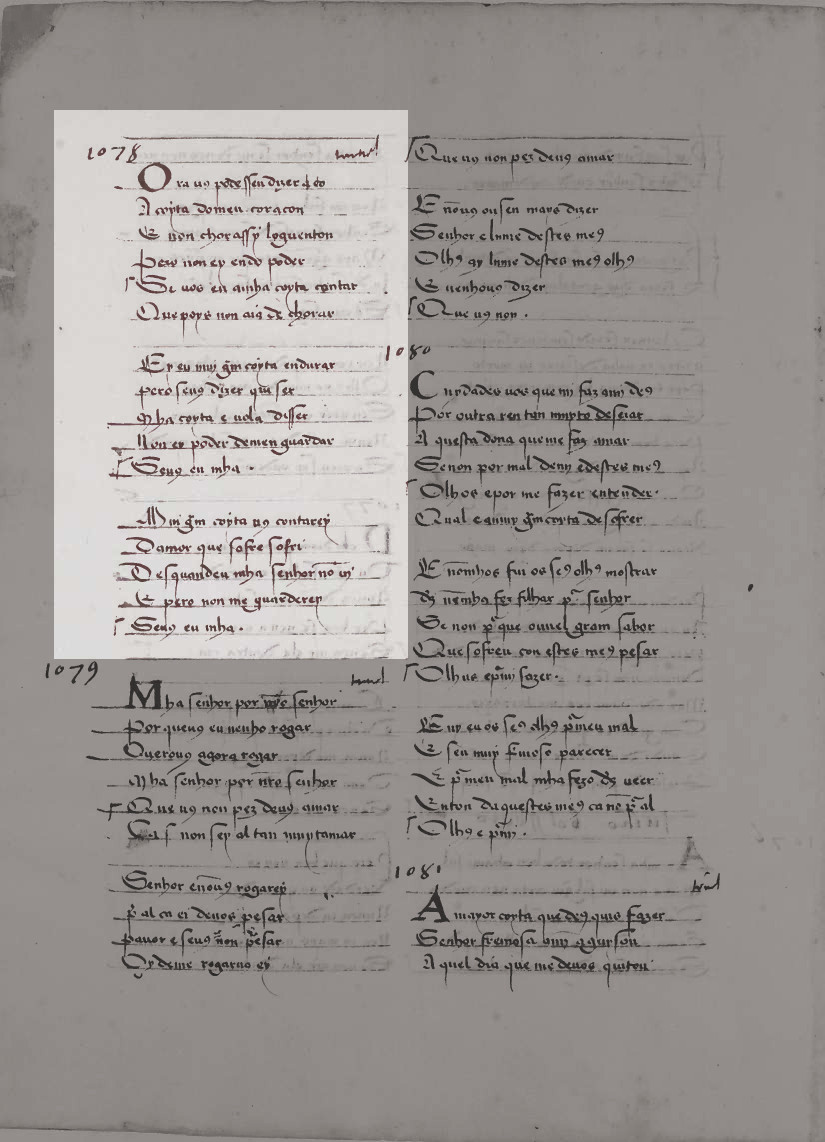 1078 tornel
Ora uꝯ podessen dizer q̄ eo
A coyta domeu coraçon
E non chorassy loguenton
Pero non ey endo poder
Se uos eu minha coyta contar
Que poys non aia de chorar
Ey eu muy gm̄ coyta endurar
pero seuꝯ dizer quiser
Mha coyta e uola disser
Non ey poder demen guardar
Seuꝯ eu mha .
Mui gm̄ coyta uꝯ contarey
Damor que sofre sofri
Desquandeu mha senhor nō ui
E pero non me guarderey
Seuꝯ eu mha .
1079 tornel
Mha senhor por uoso senhor
Por queuꝯ eu uenho rogar
Querouꝯ agora rogar
Mha senhor por nr̄o senhor
Que uꝯ non pez deuꝯ amar
Ca non sey al tan muytamar
Senhor enouꝯ rogarey
por al ca ei deuos pesar
pauor e seuꝯ non pesar
Oydeme rogaruo ey
Que uꝯ non pez deuꝯ amar
E nōuꝯ ousen mays dizer
Senhor e lume destes meꝯ
Olhꝯ ay lume destes meꝯ olhꝯ
E uenhouꝯ dizer
Que uꝯ non .
1080
Cuydades uos que mi faz ami deꝯ
Por outra ren tan muyto deseiar
A questa dona que me faz amar
Senon por mal demy e destes meꝯ
Olhos e por me fazer entender.
Qual e a muy gm̄ coyta de sofrer
E nōmhos fui os seꝯ olhꝯ mostrar
ds̄ nēmha fez filhar pr̄ senhor
Se non pr̄ que ouuel gram sabor
Que sofreu con estes meꝯ pesar
Olhus epm̄i fazer.
E uy eu os seꝯ olhꝯ pr̄ meu mal
E seu muy fr̄moso parecer
E pr̄ meu mal mha fezo ds̄ ueer
Enton daquestes meꝯ ca nō pr̄ al
Olhꝯ e pm̄i .
1081 tornel
A mayor coyta que deꝯ quis fazer
Senhor fremosa a my a guysou
A quel dia que me deuos quitou